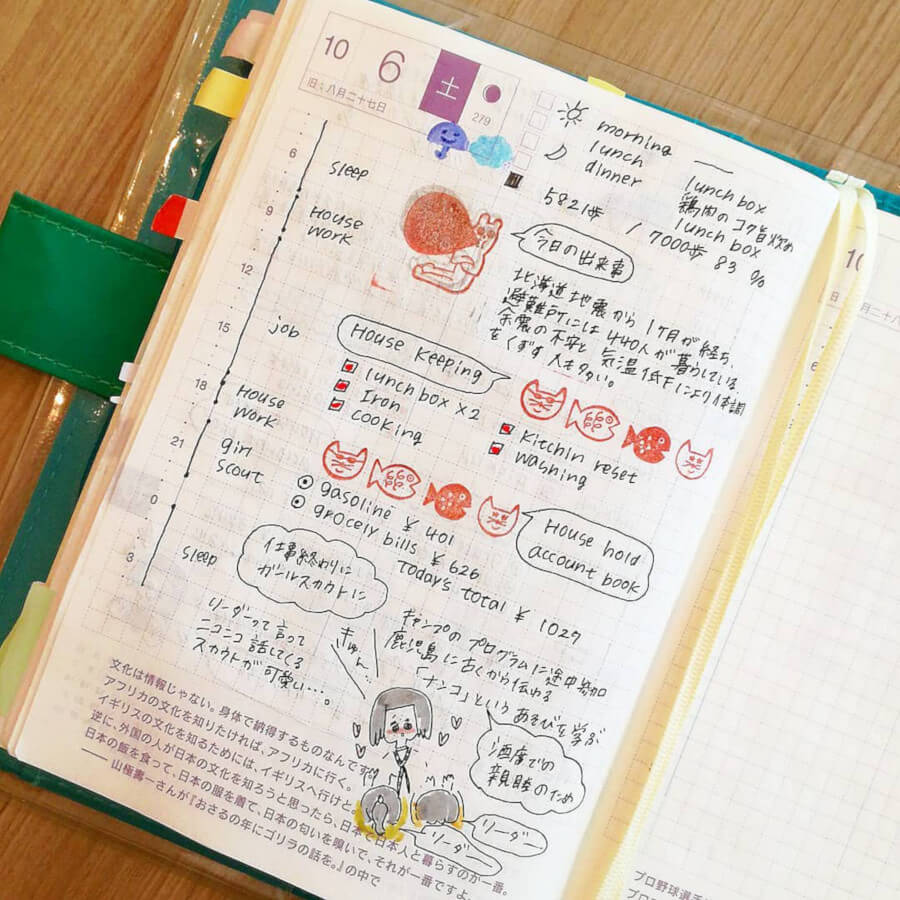 10
6
土
旧：八月二十七日
279
morning
lunch
dinner
lunch box
鶏肉のコク旨炒め
lunch box
5821歩 / 7000歩 83 %
今日の出来事
北海道地震から 1ヶ月が経ち、
避難所には440人が暮らしている。
余震の不安と 気温低下により体調
をくずす人も多い。
6
sleep
9
House
work
12
15
job
18
House
work
21
girl
scout
0
sleep
3
House keeping
lunch box x 2
Iron
cooking
kitchin reset
washing
gasoline ¥ 401
grocely bills ¥ 626
Today's total ¥ 1027
House hold
account book
仕事終わりに
ガールスカウトに
リーダーって 言って
ニコニコ 話してくる
スカウトが 可愛い…。
きゅん
キャンプの プログラムに途中参加
鹿児島に古くから伝わる
「ナンコ」という あそびを 学ぶ
酒席での
親睦のため
リーダー
リーダー
文化は情報じゃない。身体で納得するものなんです。
アフリカの文化を知りたければ、アフリカに行く。
イギリスの文化を知るためには、イギリスへ行けと。
逆に、外国の人が日本の文化を知ろうと思ったら、日本で日本人と暮らすのが一番。
日本の飯を食って、日本の服を着て、日本の匂いを嗅いで、それが一番ですよ。
——山極壽一さんが『おさるの年にゴリラの話を。』の中で
10
旧：八月二十八
6
プロ野球選手